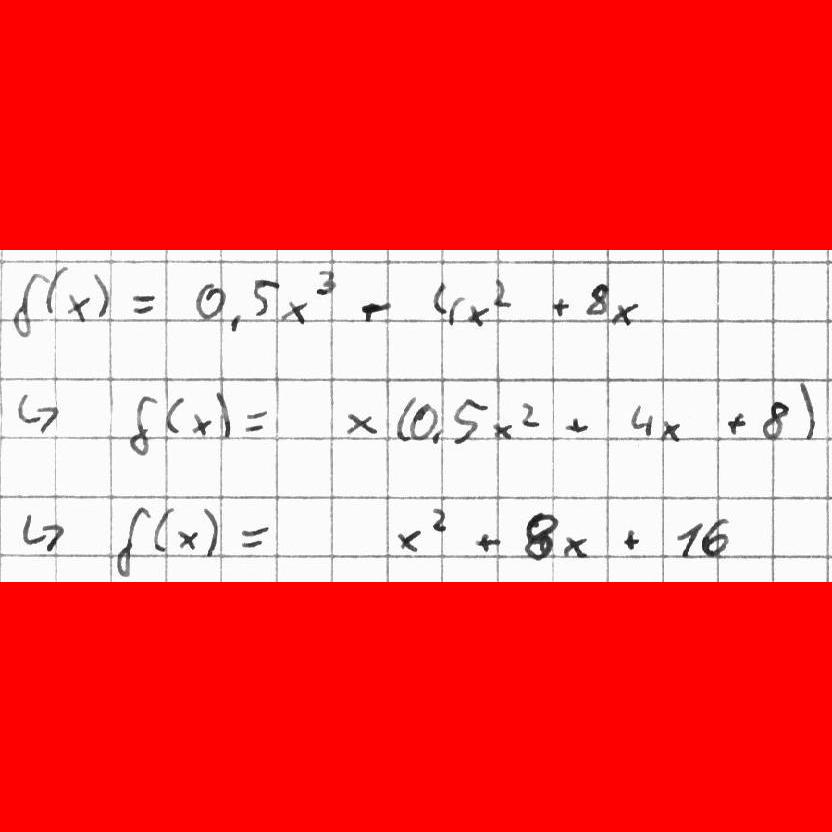 f(x) = 0,5x³ - 4x² + 8x
↳ f(x) = x(0,5x² + 4x + 8)
↳ f(x) = x² + 8x + 16